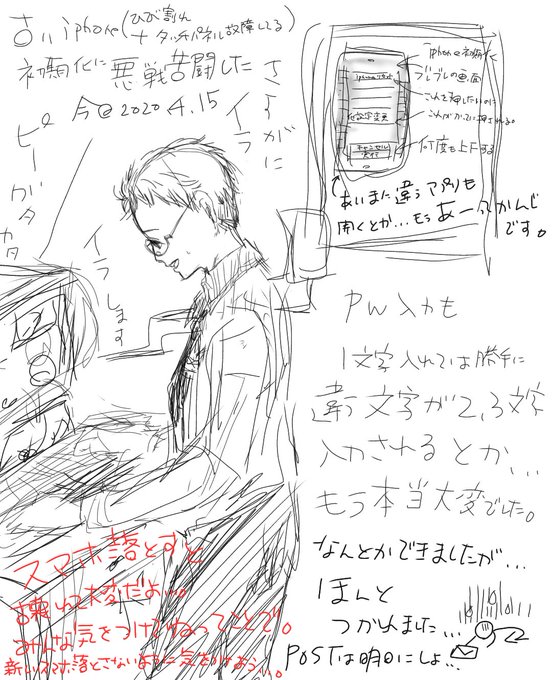 古いiphone(ひび割れ
+タッチパネル故障してる)
初期化に悪戦苦闘した
今@2020 4.15
さすがに
イラ
イラします
ピー
ガタガタ
iphone初期化
ブレブレの画面
これを押したいのに
これがかってに押される。
何度も上下する
iphoneリセット
キャンセル
あ、いままた違うアプリも
開くとか...もうあーってかんじ
です。
PW入力も
1文字入れては勝手に
違う文字が2,3文字
入力されるとか...
もう本当大変でした。
なんとかできましたが...
ほんと
つかれました...
POSTは明日にしよ...
スマホ落とすと
壊れて大変だよ...。
みんな気をつけてねってことで。
新しいスマホ落とさないように気をつけよう...。